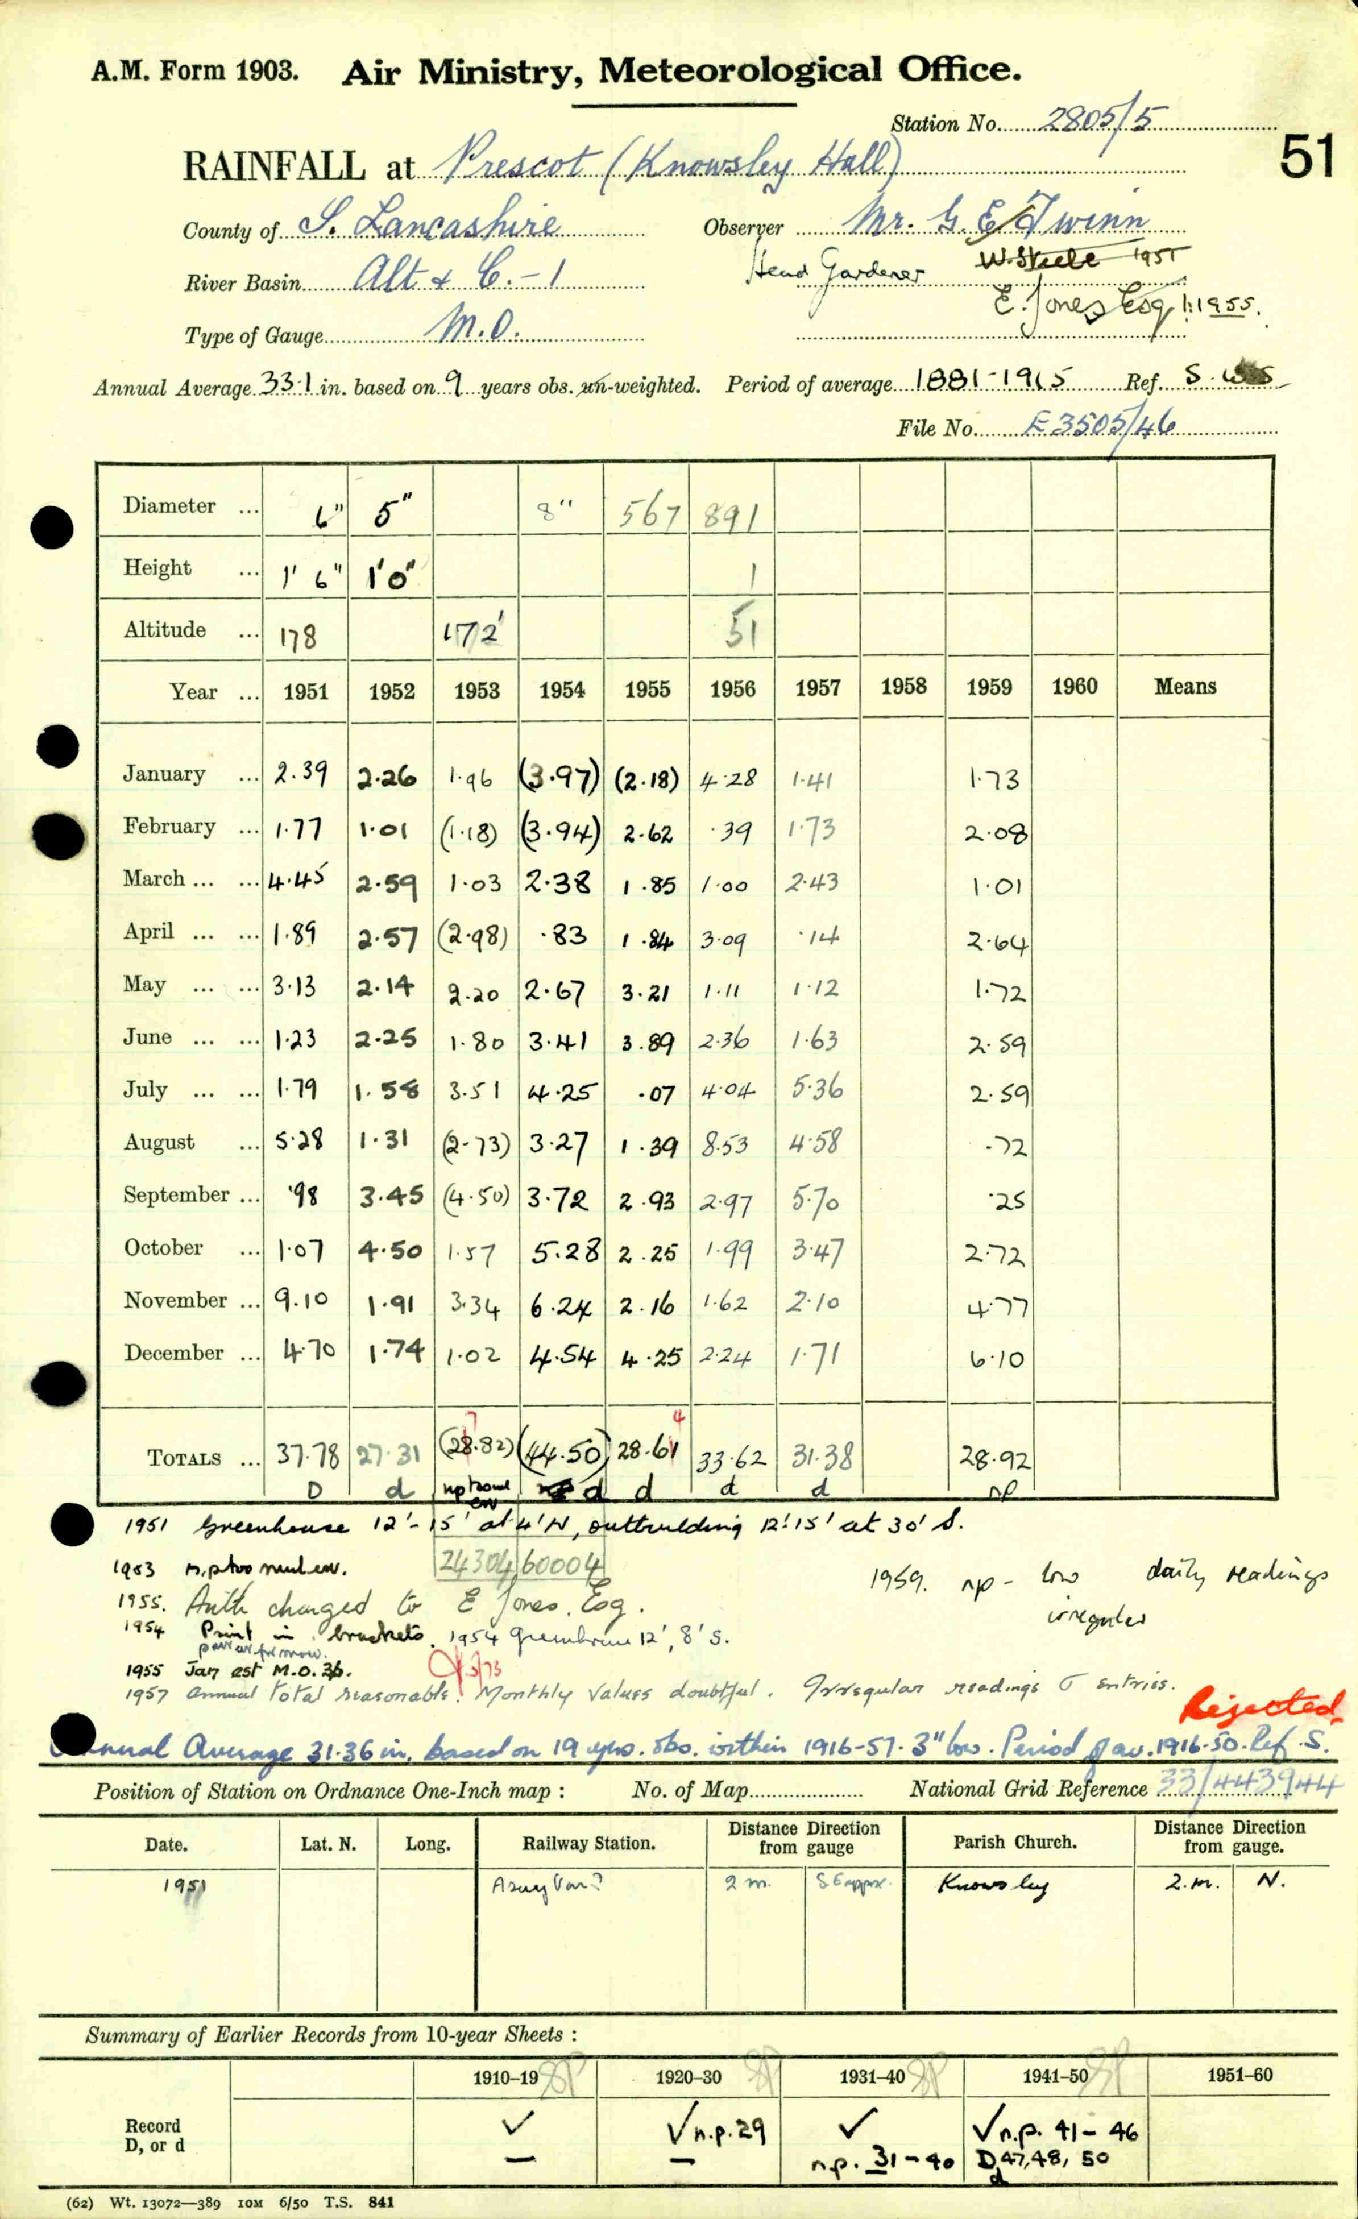 A.M. Form 1903. Air Ministry, Meteorological Office.
Station No. 2805/5
51
RAINFALL at Prescot (Knowsley Hall)
County of S. Lancashire Observer Mr. G. E. Twinn
Head Gardener W. Steele 1951
River Basin Alt & C. - 1
E. Jones Esq 1:1955.
Type of Gauge M.O.
Annual Average 33.1 in. based on 9 years obs. un-weighted. Period of average 1881-1915 Ref. S.
File No. E3505/46
Diameter ... 6" 5" 8" 567 891
Height ... 1' 6" 1'0" 1
Altitude ... 178 172' 51
Year ... 1951 1952 1953 1954 1955 1956 1957 1958 1959 1960 Means
January ... 2.39 2.26 1.96 (3.97) (2.18) 4.28 1.41 1.73
February ... 1.77 1.01 (1.18) (3.94) 2.62 .39 1.73 2.08
March ... ... 4.45 2.59 1.03 2.38 1.85 1.00 2.43 1.01
April ... ... 1.89 2.57 (2.98) .83 1.84 3.09 .14 2.64
May ... ... 3.13 2.14 2.20 2.67 3.21 1.11 1.12 1.72
June ... ... 1.23 2.25 1.80 3.41 3.89 2.36 1.63 2.59
July ... ... 1.79 1.58 3.51 4.25 .07 4.04 5.36 2.59
August ... 5.28 1.31 (2.73) 3.27 1.39 8.53 4.58 .72
September ... .98 3.45 (4.50) 3.72 2.93 2.97 5.70 .25
October ... 1.07 4.50 1.57 5.28 2.25 1.99 3.47 2.72
November ... 9.10 1.91 3.34 6.24 2.16 1.62 2.10 4.77
December ... 4.70 1.74 1.02 4.54 4.25 2.24 1.71 6.10
7 4
TOTALS ... 37.78 27.31 (28.82) (44.50) 28.61 33.62 31.38 28.92
D d np d d d d np
1951 Greenhouse 12'-15' at 4' N, outbuilding 12'.15' at 30' S.
24304 60004
1953 n.p too
1959. np - low daily readings
irregular
1955. Auth changed to E Jones. Esq.
1954 Print in brackets. 1954 greenhouse 12', 8' S.
1955 Jan est M.O.3b.
1957 annual total reasonable. Monthly values doubtful. Irregular readings & entries.
Rejected
Annual Average 31.36 in. based on 19 yrs. obs. within 1916-57. 3" low. Period of av. 1916-50. Ref. S.
Position of Station on Ordnance One-Inch map : No. of Map National Grid Reference 33/443944
Date. Lat. N. Long. Railway Station. Distance from gauge Direction Parish Church. Distance Direction from gauge.
1951 2 m. SE appx. Knowsley 2.m. N.
Summary of Earlier Records from 10-year Sheets :
1910-19 1920-30 1931-40 1941-50 1951-60
Record D, or d ✓ ✓ n.p. 29 ✓ ✓ n.p. 41-46
— — n.p. 31-40 D 47,48, 50
d
(62) Wt. 13072—389 10M 6/50 T.S. 841